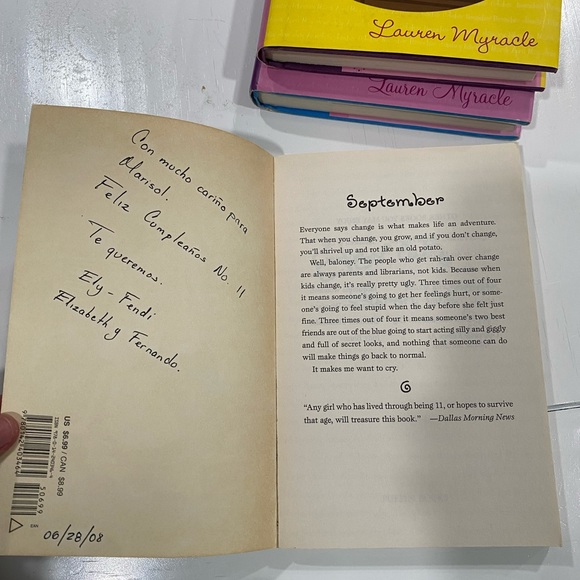 Lauren Myracle
Lauren Myracle
Con mucho cariño para
Marisol.
Feliz Cumpleaños No. 11
Te queremos.
Ely - Fendi
Elizabeth y Fernando.
US $6.99 / CAN $8.99
50699
06/28/08
September
Everyone says change is what makes life an adventure.
That when you change, you grow, and if you don't change,
you'll shrivel up and rot like an old potato.
Well, baloney. The people who get rah-rah over change
are always parents and librarians, not kids. Because when
kids change, it's really pretty ugly. Three times out of four
it means someone's going to get her feelings hurt, or some-
one's going to feel stupid when the day before she felt just
fine. Three times out of four it means someone's two best
friends are out of the blue going to start acting silly and giggly
and full of secret looks, and nothing that someone can do
will make things go back to normal.
It makes me want to cry.
“Any girl who has lived through being 11, or hopes to survive
that age, will treasure this book.” —Dallas Morning News